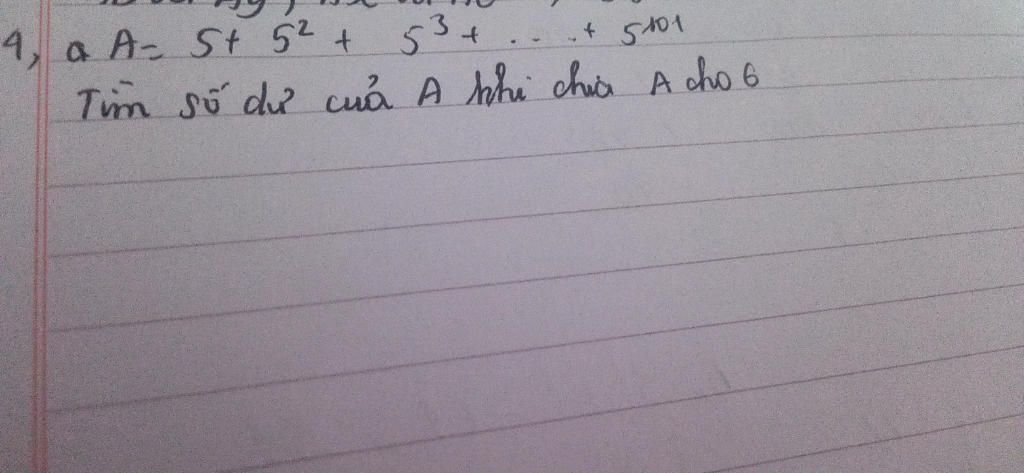 4, a A = 5 + 5² + 5³ + . . . . + 5¹⁰¹
Tìm số dư của A khi chia A cho 6